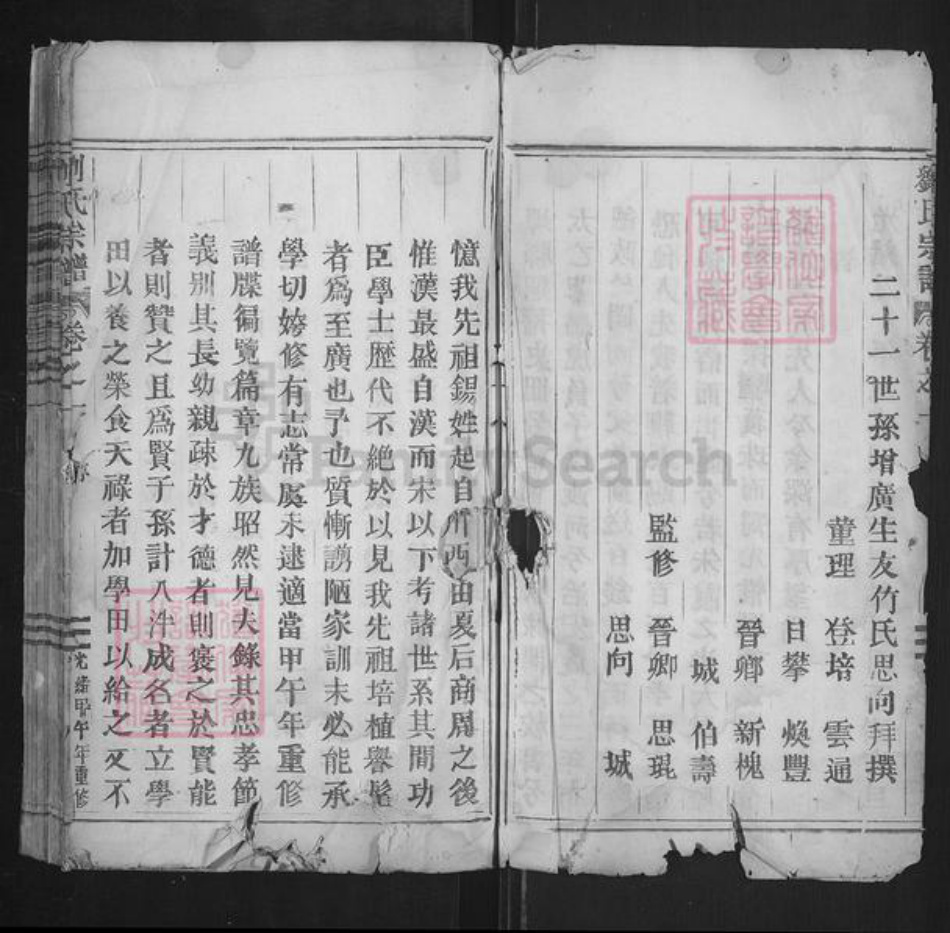 二十一世孫增廣生友竹氏思向拜撰
董理 登培 雲通
日攀 煥豐
晉卿 新槐
城 伯壽
監修 晉卿 思琨
思向 城
劉氏宗譜 卷之一
憶我先祖錫姓起自 由夏后商周之後
惟漢最盛自漢而宋以下考諸世系其間功
臣學士歷代不絕於以見我先祖培植譽髦
者爲至廣也予也質慚謭陋家訓未必能承
學切姱修有志常展未逮適當甲午年重修
譜牒徧覽篇章九族昭然見夫錄其忠孝節
義別其長幼親疎於才德者則褒之於賢能
者則贊之且爲賢子孫計入泮成名者立學
田以養之榮食天祿者加學田以給之又不
劉氏宗譜 卷之一 序
光緒甲午年重修
FamilySearch